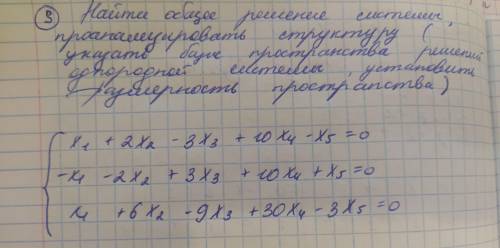 ③ Найти общее решение системы,
проанализировать структуру (
указать базис пространства решений
однородной системы, установить
размерность пространства)
x1 + 2x2 - 3x3 + 10x4 - x5 = 0
-x1 - 2x2 + 3x3 + 10x4 + x5 = 0
x1 + 6x2 - 9x3 + 30x4 - 3x5 = 0